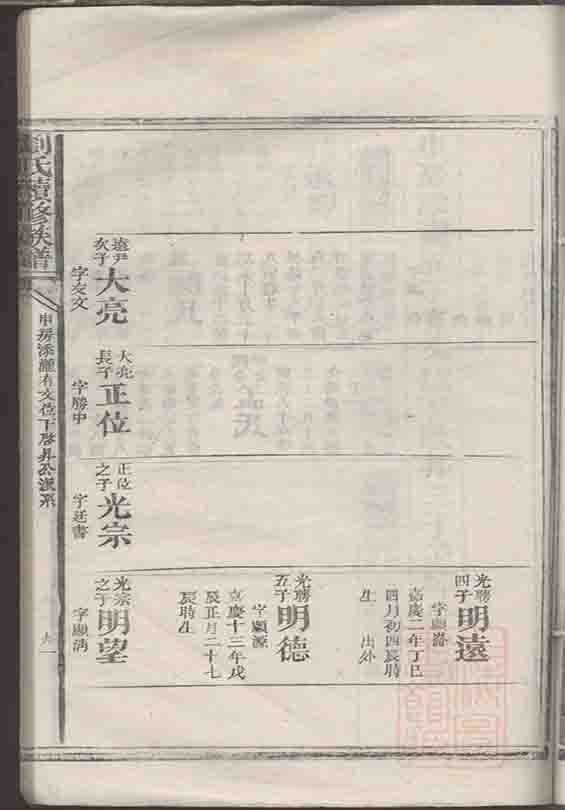 光聘
四子
明遠
嘉慶二年丁巳
四月初四辰時
生 出外
光聘
五子
明德
字顯源
嘉慶十三年戊
辰正月二十七
辰時生
遠尹
次子
大亮
字交文
大亮
長子
正位
字勝中
正位
之子
光宗
字廷書
光宗
之子
明望
字顯清
劉氏續修族譜